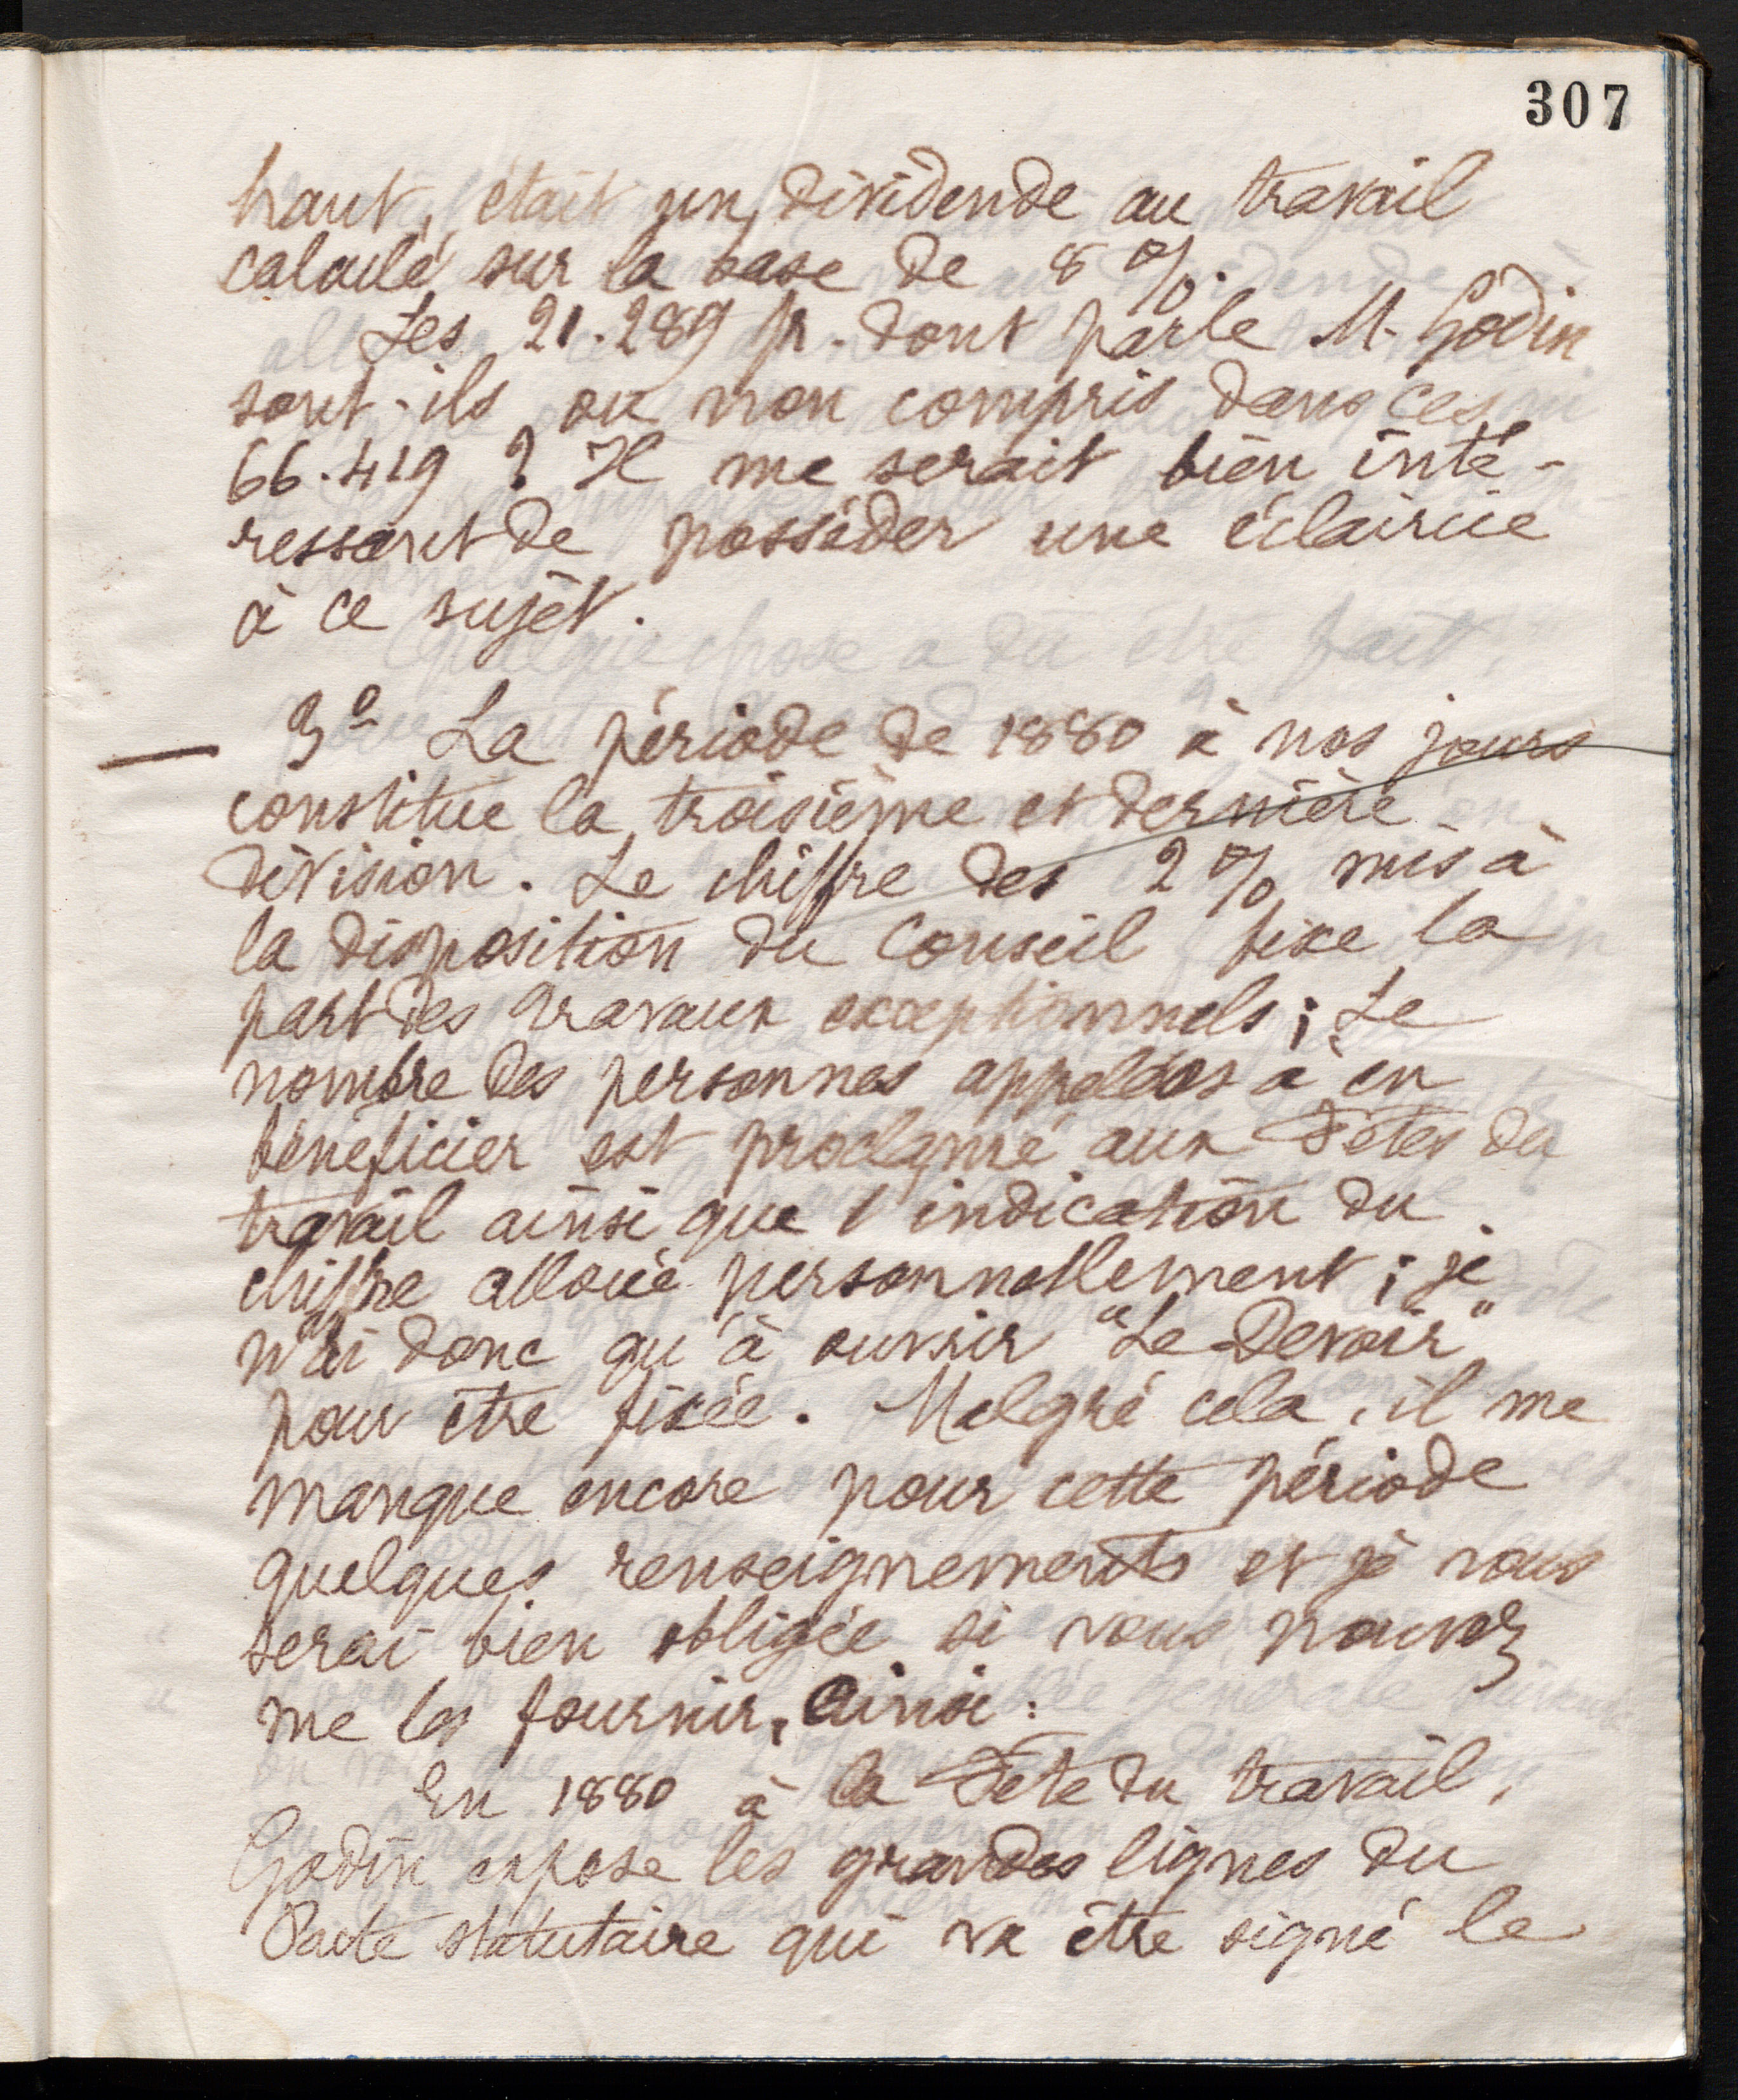 307
haut, était un dividende au travail
calculé sur la base de 8 %.
Les 21.289 fr. dont parle M. Godin
sont-ils ou non compris dans ces
66.419 ? Il me serait bien inté-
ressant de posséder une éclaircie
à ce sujet.
3º La période de 1880 à nos jours
constitue la troisième et dernière
division. Le chiffre des 2 % mis à
la disposition du Conseil fixe la
part des travaux exceptionnels ; Le
nombre des personnes appelées à en
bénéficier est proclamé aux Fêtes du
travail ainsi que l'indication du
chiffre alloué personnellement ; je
n'ai donc qu'à ouvrir "Le Devoir"
pour être fixée. Malgré cela, il me
manque encore pour cette période
quelques renseignements et je vous
serai bien obligée si vous pouvez
me les fournir, ainsi :
En 1880 à la Fête du travail,
Godin expose les grandes lignes du
Pacte statutaire qui va être signé le